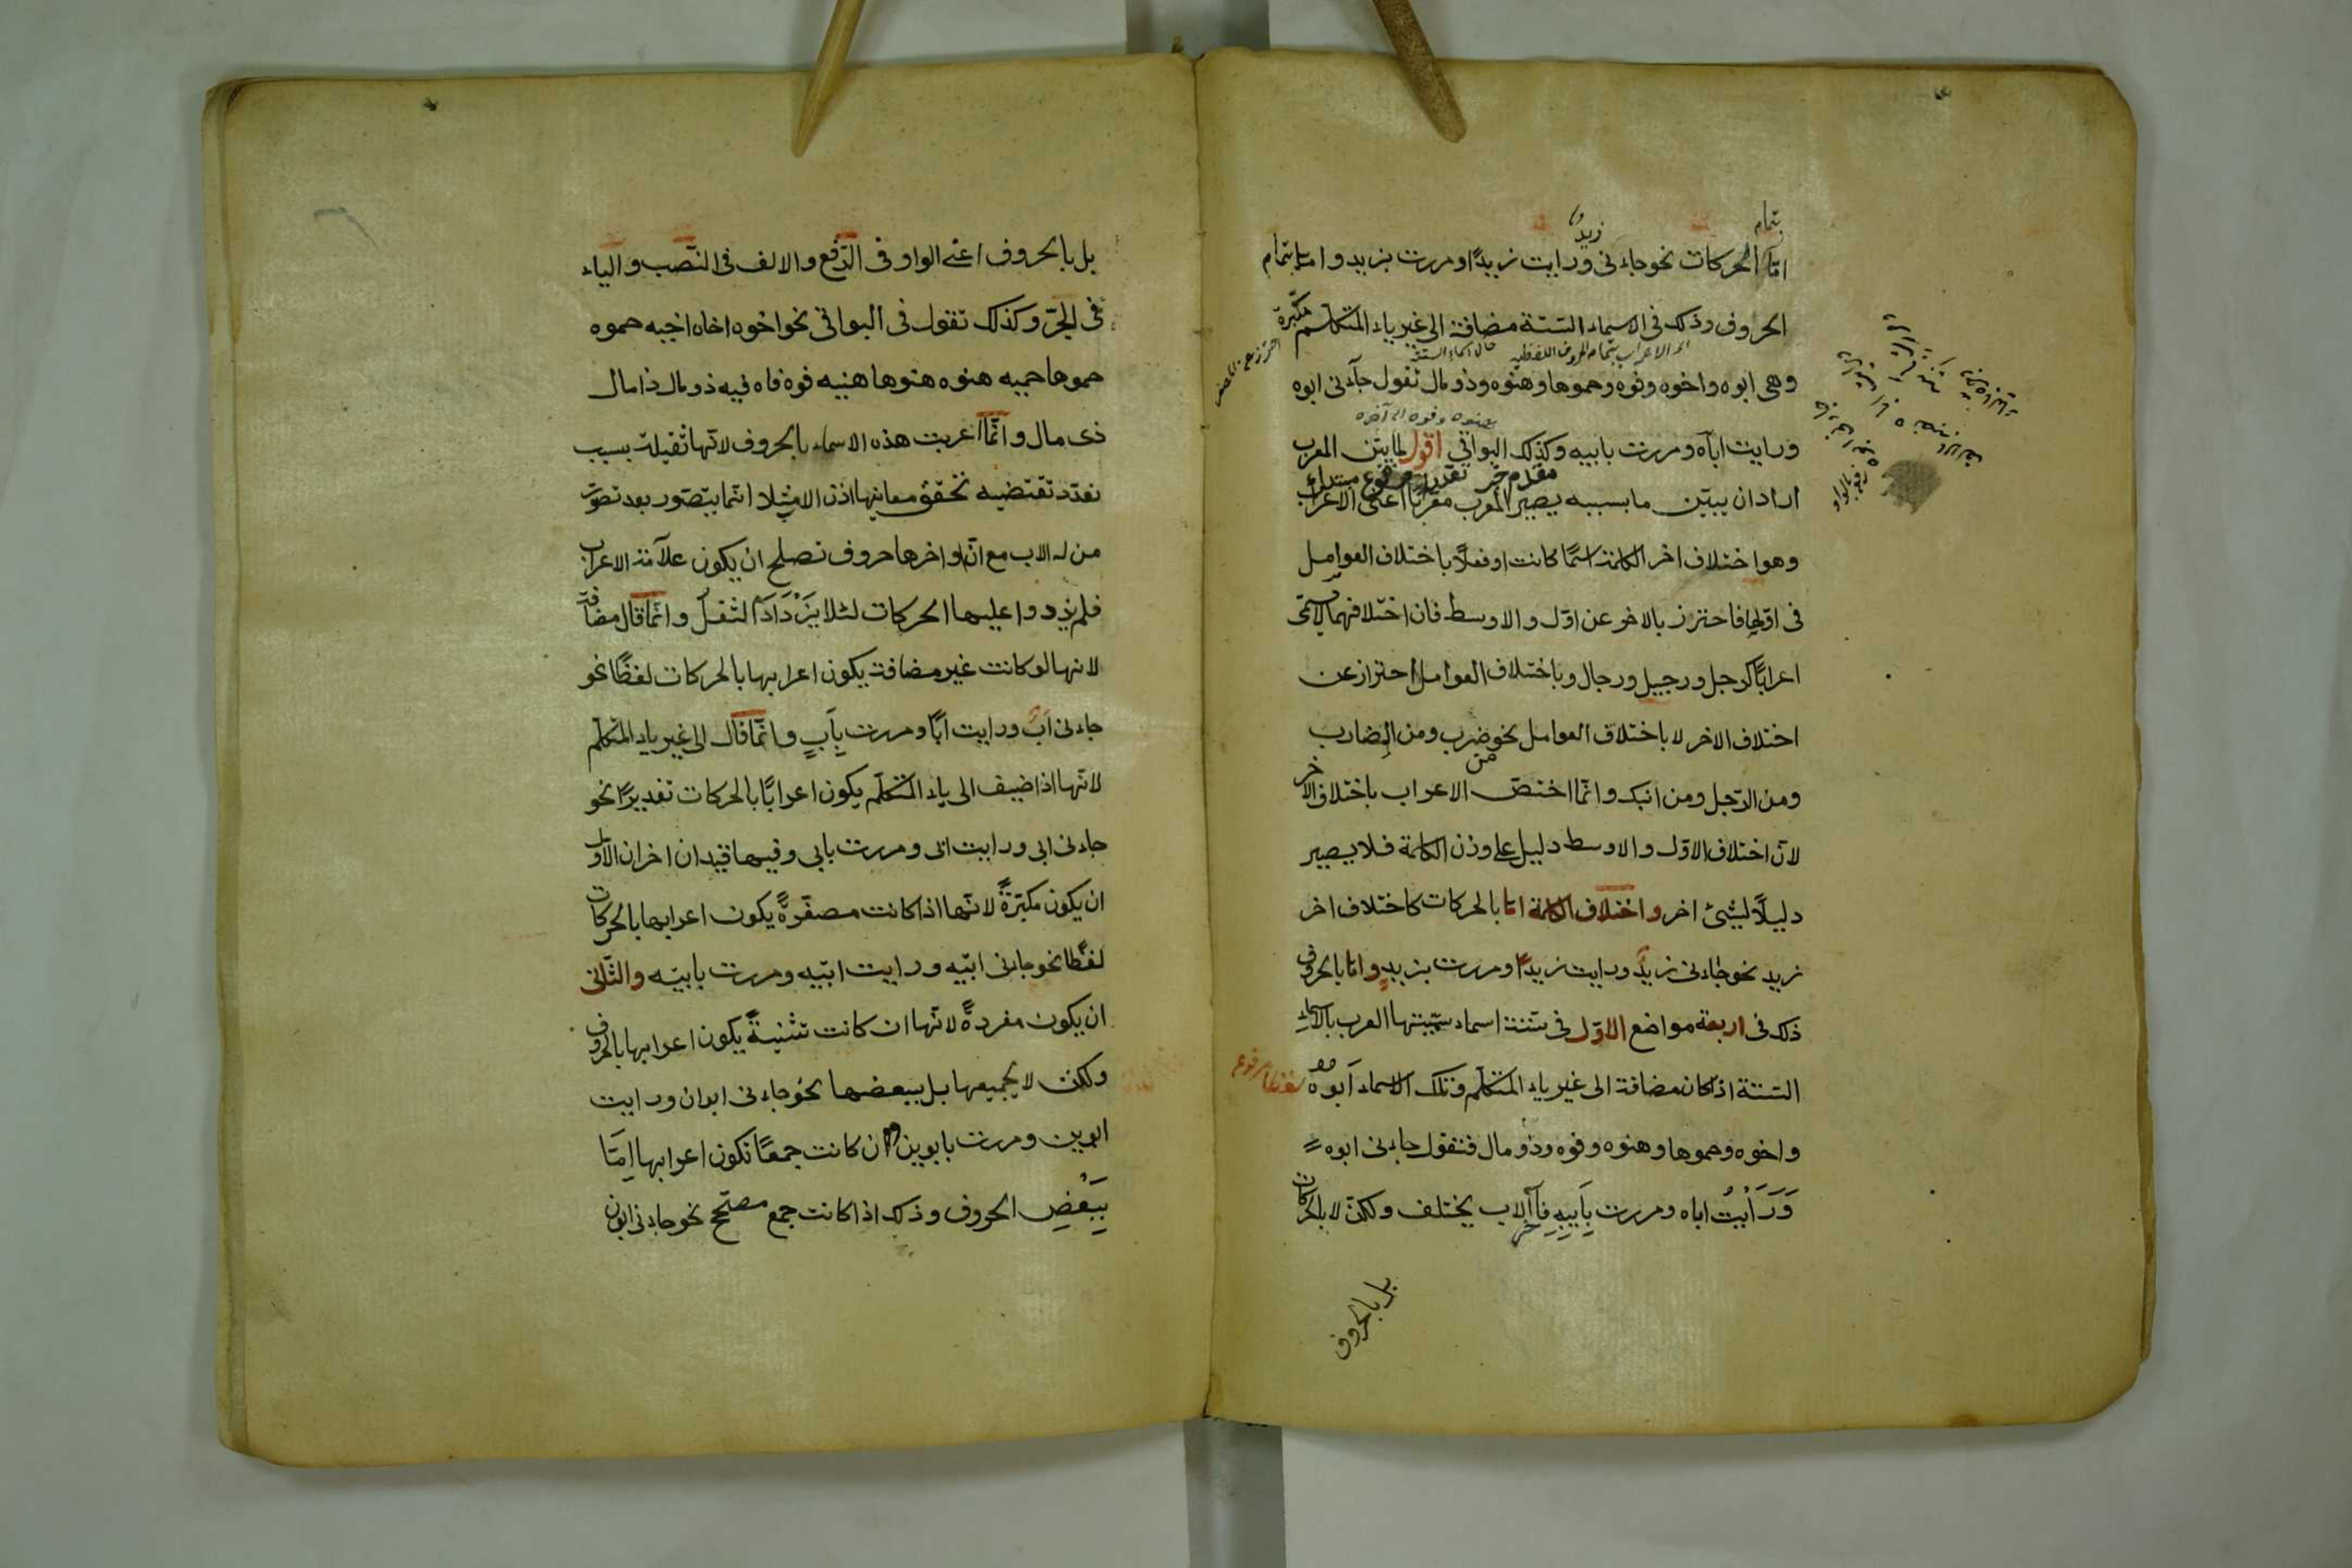 بتمام
زيدٌ
اما الحركات نحو جاءنى ورايت زيدًا ومررت بزيد واما بتمام
الحروف وذلك فى الاسماء الستة مضافة الى غير ياء المتكلم مكبرة
وهى ابوه واخوه وفوه وحموها وهنوه وذو مال تقول جآءنى ابوه
ورايت اباه ومررت بابيه وكذلك البواقى اقول لما بيّن المعرب
اراد ان يبيّن ما بسببه يصير المعرب معربًا اعنى الاعراب
وهو اختلاف اخر الكلمة اسمًا كانت او فعلًا باختلاف العوامل
فى اولها فاحترز بالاخر عن اوّل والاوسط فان اختلافهما لا يسمّى
اعرابًا كرجل ورجيل ورجال وباختلاف العوامل احتراز عن
اختلاف الاخر لا باختلاف العوامل نحو من ضرب ومن الضارب
ومن الرّجل ومن ابنك وانّما اختصّ الاعراب باختلاف الاخر
لانّ اختلاف الاوّل والاوسط دليل على وزن الكلمة فلا يصير
دليلًا لشئ اخر واختلاف الكلمة اما بالحركات كاختلاف اخر
زيد نحو جاءنى زيدٌ ورايت زيدًا ومررت بزيدٍ واما بالحروف
ذلك فى اربعة مواضع الاوّل فى ستة اسماء سمّيتها العرب بالاسماء
الستة اذا كان مضافة الى غير ياء المتكلم وتلك الاسماء ابوه
واخوه وحموها وهنوه وفوه وذو مال فتقول جاءنى ابوه
وَرَأَيْتُ اباه ومررت بِأَبِيهِ فآخر الاب يختلف ولكن لا بالحركات
بل بالحروف
بل بالحروف اعنى الواو فى الرّفع والالف فى النّصب والياء
فى الجرّ وكذلك تقول فى البواقى نحو اخوه اخاه اخيه حموه
حموها حميه هنوه هنوها هنيه فوه فاه فيه ذو مال ذا مال
ذى مال وانّما اعربت هذه الاسماء بالحروف لانّها ثقيلة بسبب
تعدّد تقتضيه تحقّق معانيها اذ الاب مثلا انما يتصوّر بعد تصوّر
من له الاب مع انّ اواخرها حروف تصلح ان يكون علامة الاعراب
فلم يزدوا عليها الحركات لئلا يَزْدَادَ الثقل وانّما قال مضافة
لانها لو كانت غير مضافة يكون اعرابها بالحركات لفظًا نحو
جاءنى ابٌ ورايت ابًا ومررت بِأَبٍ وانّما قال الى غير ياء المتكلّم
لانّها اذا اضيف الى ياء المتكلّم يكون اعرابًا بالحركات تقديرًا نحو
جاءنى ابى ورايت ابى ومررت بابى وفيها قيدان اخران الاوّل
ان يكون مكبّرةً لانّها اذا كانت مصغّرةً يكون اعرابها بالحركات
لفظًا نحو جاءنى ابيّه ورايت ابيّه ومررت بابيّه والثّانى
ان يكون مفردةً لانّها ان كانت تثنيةً يكون اعرابها بالحروف
ولكن لا بجميعها بل ببعضها نحو جاءنى ابوان ورايت
ابوين ومررت بابوين وان كانت جمعًا تكون اعرابها امّا
بِبَعْضِ الحروف وذلك اذا كانت جمع مصحّح نحو جاءنى ابون